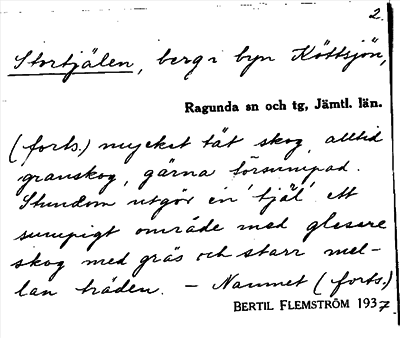 2.
Stortjälen, berg i byn Köttsjön,
Ragunda sn och tg, Jämtl. län.
(forts.) mycket tät skog, alltid
granskog, gärna försumpad.
Stundom utgör en 'tjäl' ett
sumpigt område med glesare
skog med gräs och starr mel-
lan träden. - Namnet (forts.)
BERTIL FLEMSTRÖM 1937.